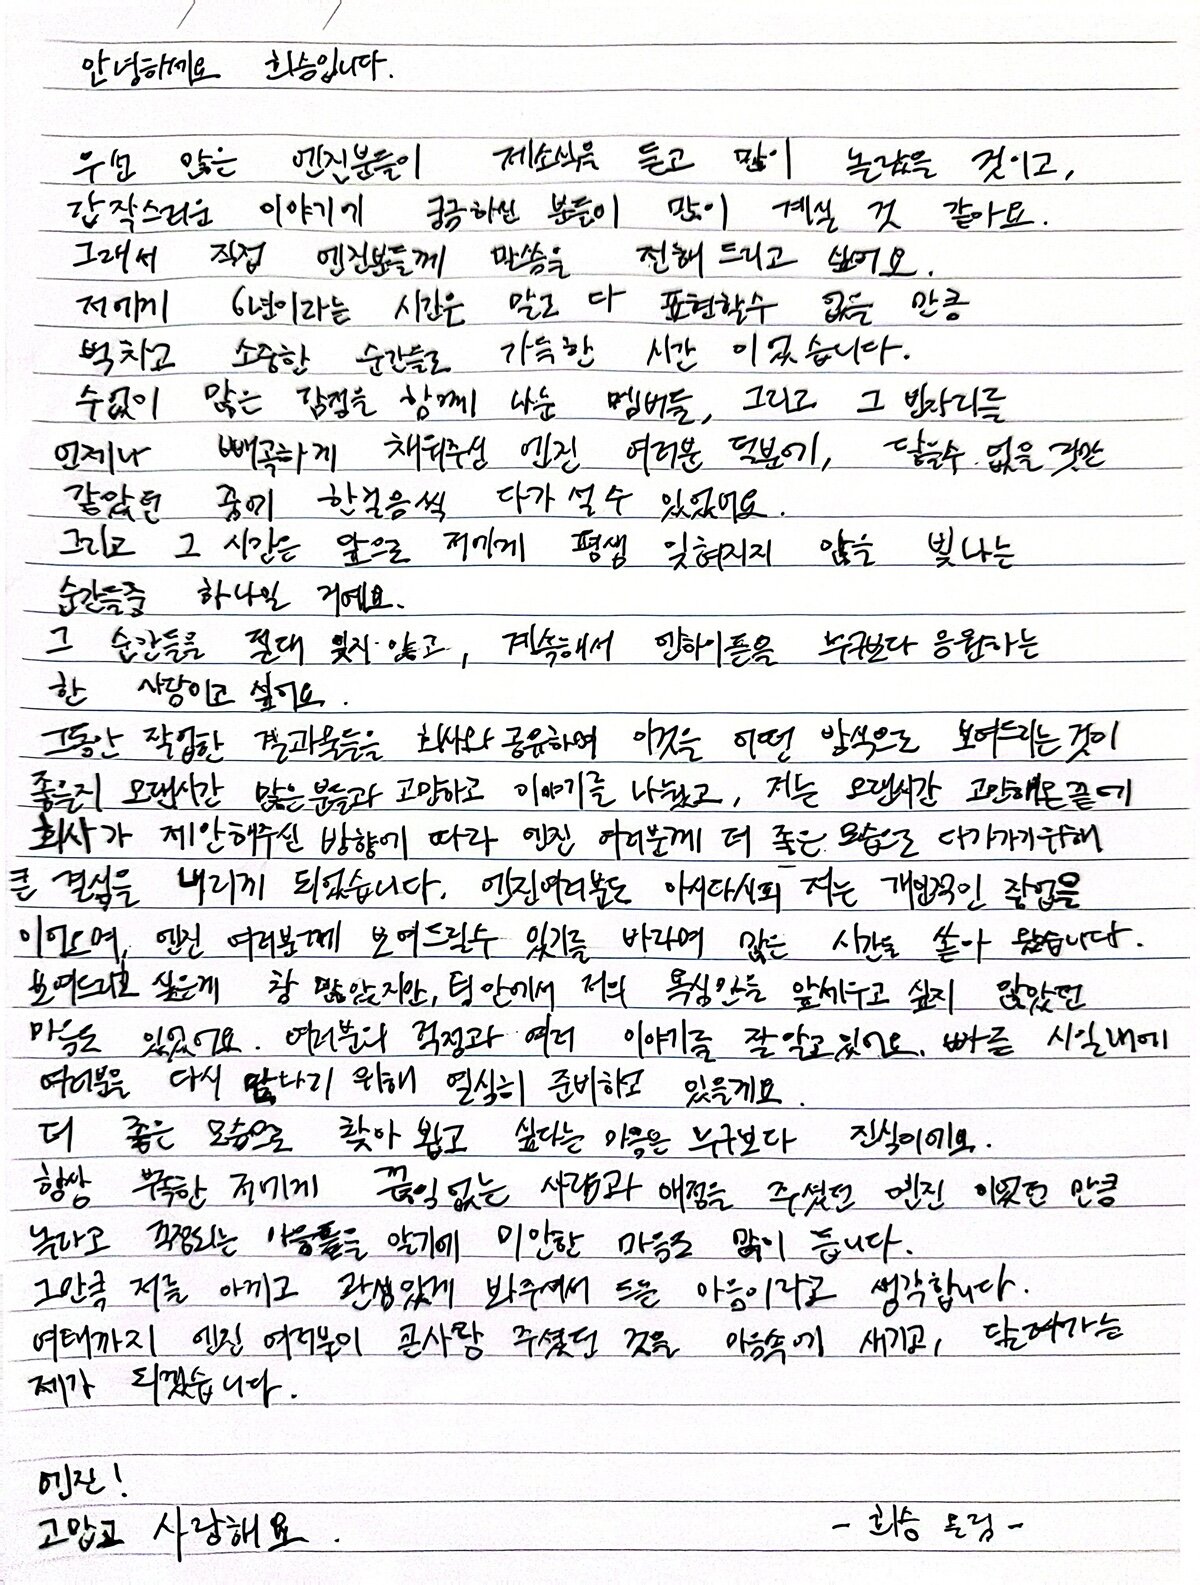 안녕하세요 희승입니다.
우선 많은 엔진분들이 제소식을 듣고 많이 놀랐을 것이고,
갑작스러운 이야기에 궁금하신 분들이 많이 계실 것 같아요.
그래서 직접 엔진분들께 말씀을 전해 드리고 싶어요.
저에게 6년이라는 시간은 말로 다 표현할수 없을 만큼
벅차고 소중한 순간들로 가득한 시간 이었습니다.
수없이 많은 감정을 함께 나눈 멤버들, 그리고 그 빈자리를
언제나 빼곡하게 채워주신 엔진 여러분 덕분에, 닿을수 없을 것만
같았던 꿈에 한걸음씩 다가 설수 있었어요.
그리고 그 시간은 앞으로 저에게 평생 잊혀지지 않을 빛나는
순간들중 하나일 거예요.
그 순간들을 절대 잊지 않고, 계속해서 엔하이픈을 누구보다 응원하는
한 사람이고 싶어요.
그동안 작업한 결과물들을 회사와 공유하며 이것을 어떤 방식으로 보여드리는것이
좋을지 오랜시간 많은분들과 고민하고 이야기를 나눴고, 저는 오랜시간 고민해온끝에
회사가 제안해주신 방향에 따라 엔진 여러분께 더 좋은 모습으로 다가가기위해
큰 결심을 내리게 되었습니다. 엔진여러분도 아시다시피 저는 개인적인 작업을
이어오며, 엔진 여러분께 보여드릴수 있기를 바라며 많은 시간을 쏟아 왔습니다.
보여드리고 싶은게 참 많았지만, 팀 안에서 저의 욕심만을 앞세우고 싶지 않았던
마음도 있었어요. 여러분의 걱정과 여러 이야기를 잘 알고있어요. 빠른 시일내에
여러분을 다시 만나기 위해 열심히 준비하고 있을게요.
더 좋은 모습으로 찾아 뵙고 싶다는 마음은 누구보다 진심이에요.
항상 부족한 저에게 끊임없는 사랑과 애정을 주셨던 엔진 이었던 만큼
놀라고 걱정되는 마음들을 알기에 미안한 마음도 많이 듭니다.
그만큼 저를 아끼고 관심있게 봐주셔서 드는 마음이라고 생각합니다.
여태까지 엔진 여러분이 큰사랑 주셨던 것을 마음속에 새기고, 달려가는
제가 되겠습니다.
엔진!
고맙고 사랑해요.
- 희승 올림 -